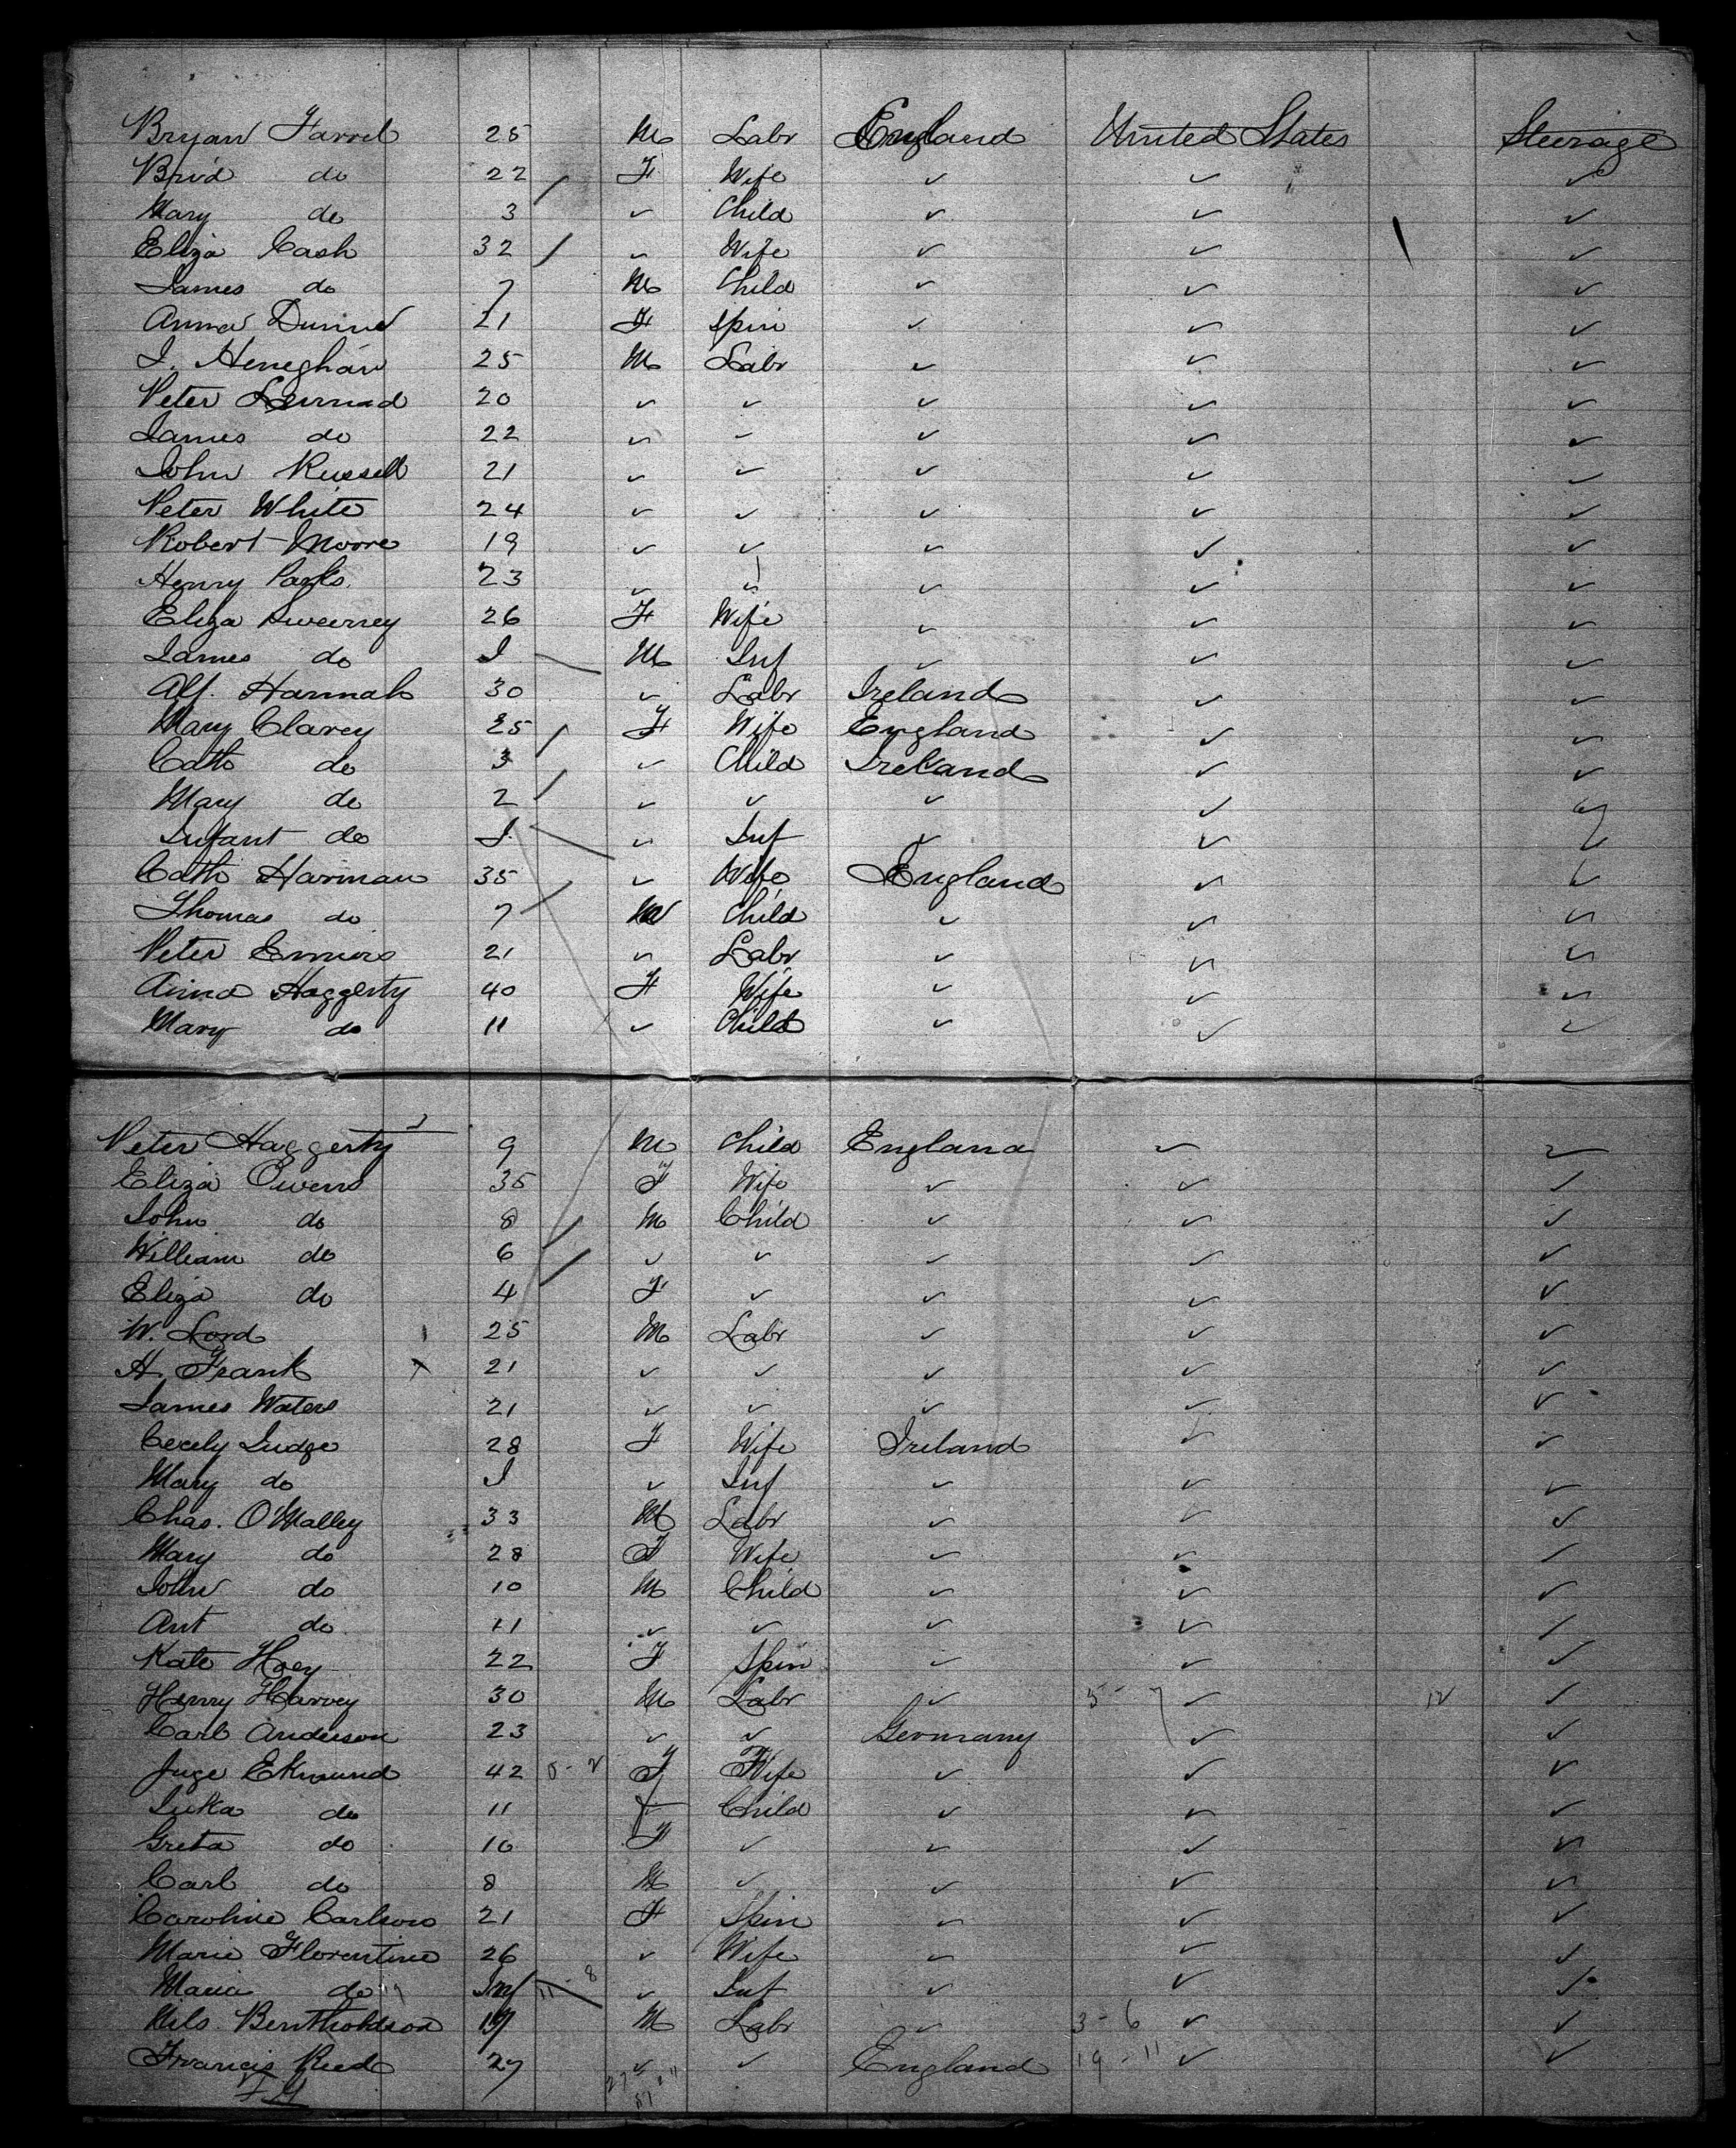 Bryan Farrel 25 M Labr England United States Steerage
Brid do 22 F Wife ✓ ✓ ✓
Mary do 3 ✓ Child ✓ ✓ ✓
Eliza Cash 32 ✓ Wife ✓ ✓ ✓
James do 7 M Child ✓ ✓ ✓
Anna Dunne 21 F Spin ✓ ✓ ✓
J. Heneghan 25 M Labr ✓ ✓ ✓
Peter 20 ✓ ✓ ✓ ✓ ✓
James do 22 ✓ ✓ ✓ ✓ ✓
John Russell 21 ✓ ✓ ✓ ✓ ✓
Peter White 24 ✓ ✓ ✓ ✓ ✓
Robert Moore 19 ✓ ✓ ✓ ✓ ✓
Henry Parks. 23 ✓ ✓ ✓ ✓ ✓
Eliza Sweeney 26 F Wife ✓ ✓ ✓
James do I M Inf ✓ ✓ ✓
Alf. Hannah 30 ✓ Labr Ireland ✓ ✓
Mary Clarey 25 F Wife England ✓ ✓
Cath do 3 ✓ Child Ireland ✓ ✓
Mary do 2 ✓ ✓ ✓ ✓ ✓
Infant do I ✓ Inf ✓ ✓ ✓
Cath Harman 35 ✓ Wife England ✓ ✓
Thomas do 7 M Child ✓ ✓ ✓
Peter 21 ✓ Labr ✓ ✓ ✓
Anna Haggerty 40 F Wife ✓ ✓ ✓
Mary do 11 ✓ Child ✓ ✓ ✓
Peter Haggerty 9 M Child England ✓ ✓
Eliza Owens 35 F Wife ✓ ✓ ✓
John do 8 M Child ✓ ✓ ✓
William do 6 ✓ ✓ ✓ ✓ ✓
Eliza do 4 F ✓ ✓ ✓ ✓
W. Lord 25 M Labr ✓ ✓ ✓
H. Frank 21 ✓ ✓ ✓ ✓ ✓
James Waters 21 ✓ ✓ ✓ ✓ ✓
Cecely Judge 28 F Wife Ireland ✓ ✓
Mary do I ✓ Inf ✓ ✓ ✓
Chas. O'Malley 33 M Labr ✓ ✓ ✓
Mary do 28 F Wife ✓ ✓ ✓
John do 10 M Child ✓ ✓ ✓
Ant do 11 ✓ ✓ ✓ ✓ ✓
Kate Hoey 22 F Spin ✓ ✓ ✓
Henry Harvey 30 M Labr ✓ ✓ 12 ✓
Carl Anderson 23 ✓ ✓ Germany ✓ ✓
Inge Ekmund 42 F Wife ✓ ✓ ✓
do 11 Child ✓ ✓ ✓
Greta do 10 F ✓ ✓ ✓ ✓
Carl do 8 M ✓ ✓ ✓ ✓
Caroline Carlson 21 F Spin ✓ ✓ ✓
Marie Florentine 26 ✓ Wife ✓ ✓ ✓
Maria do Inf ✓ Inf ✓ ✓ ✓
Nils Bentholdson 19 M Labr ✓ 3-6 ✓ ✓
Francis Reed 27 ✓ ✓ England 19-11 ✓ ✓